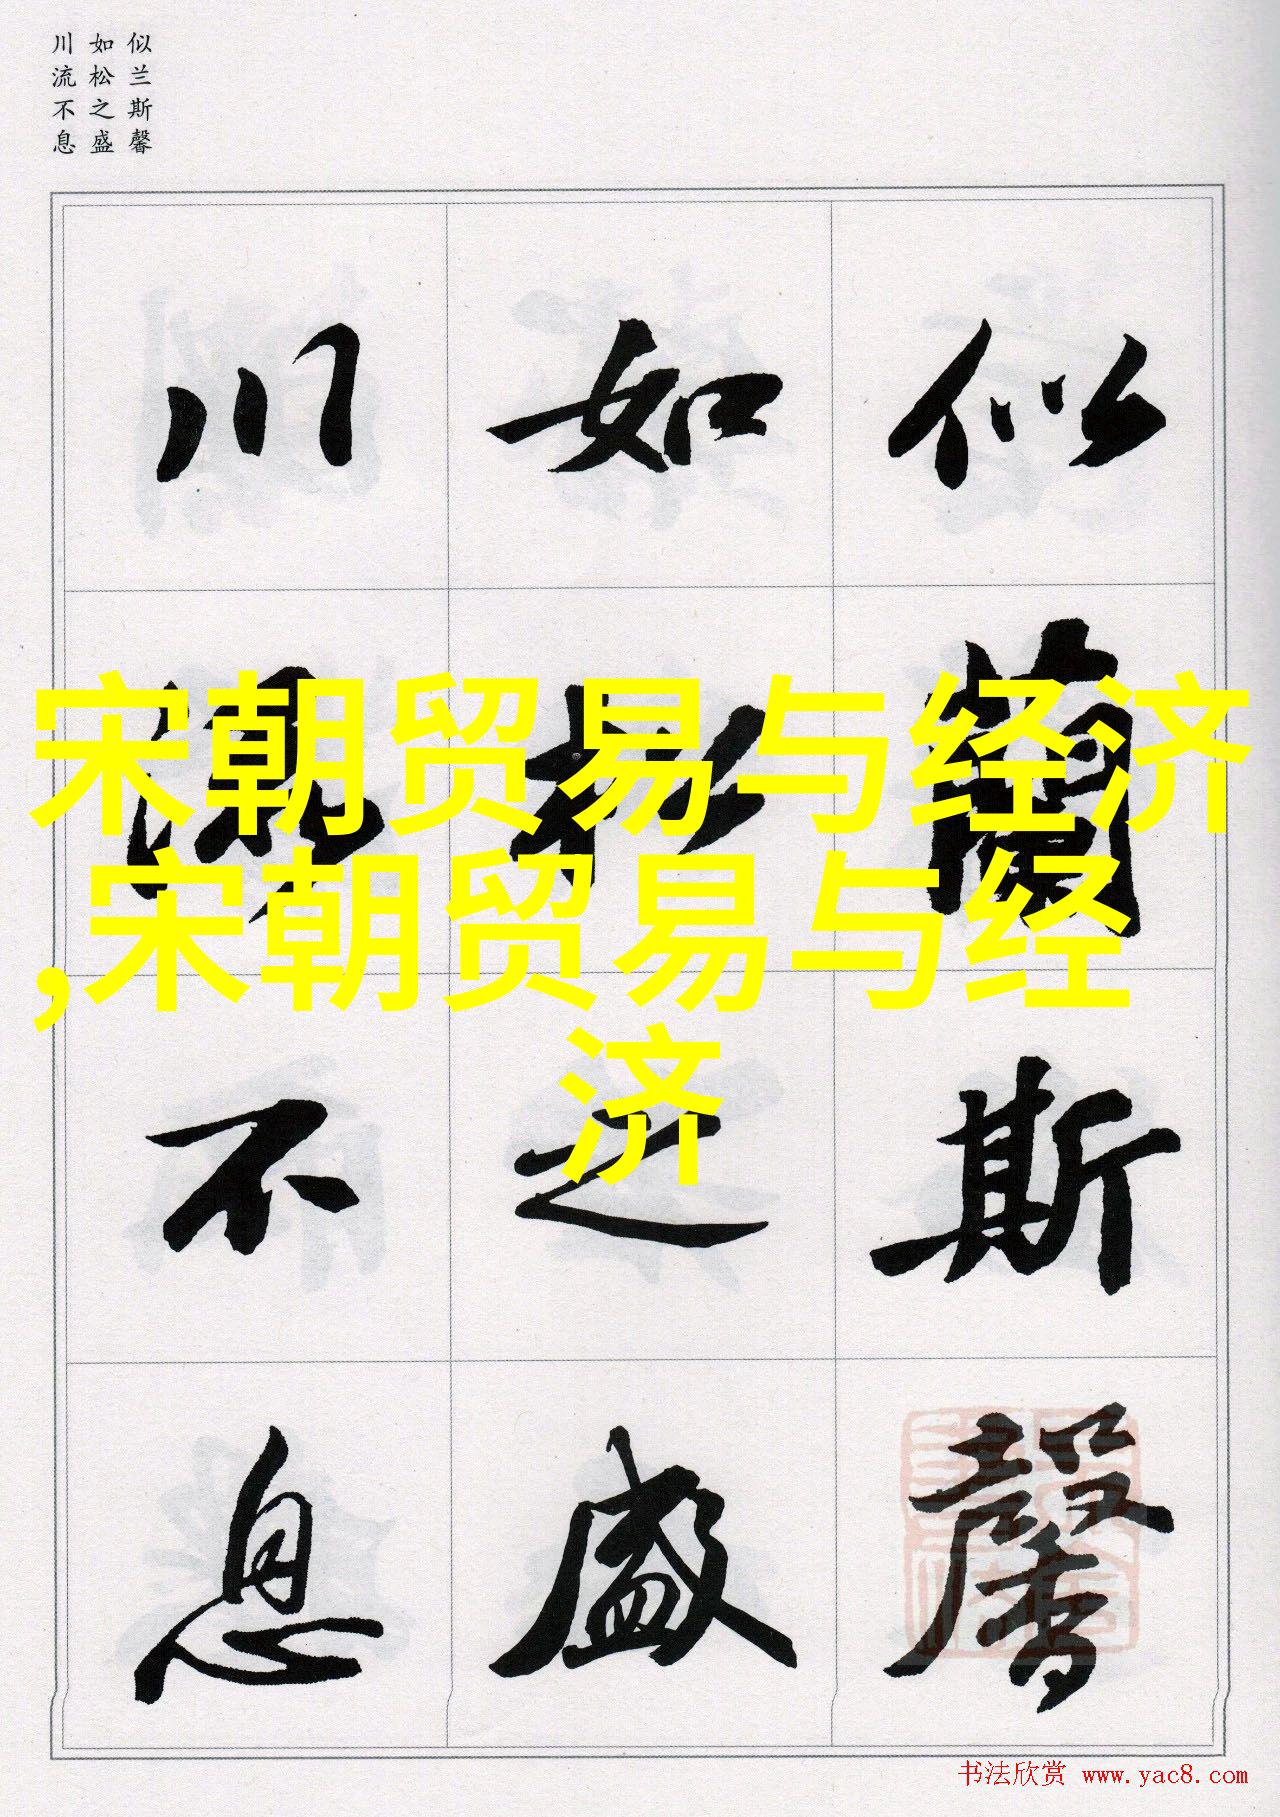 似兰斯馨
如松之盛
川流不息
似蘭斯馨
如松之盛
川流不息
宋朝贸易与经济
,宋朝贸易与经
济
书法欣赏 www.yac8.com